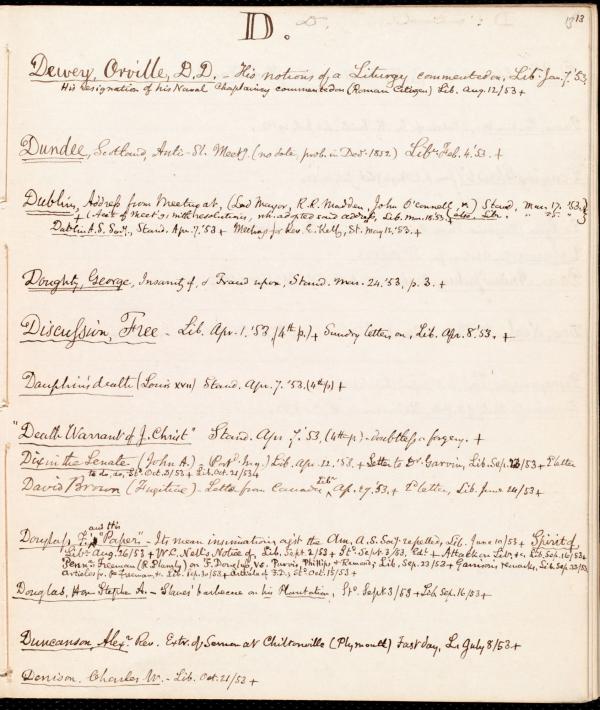 D.
13
Dewey, Orville, D.D. - His notions of a Liturgy commented on, Lib. Jan. 7. '53.
His designation of his Naval Chaplaincy commented on (Roman Citizen) Lib. Aug. 12/53 +
Dundee, Scotland, Anti-Sl. Meetg. (no date, prob. in Decr. 1852) Libr. Feb. 4. '53. +
Dublin, Address from Meeting at, (Lord Mayor, R.R. Madden, John O'Connell, &c.) Stand. Mar. 17. '53.
+ (Acct. of Meetg. with resolutions, wh. adopted said address, Lib. Mar. 18. 53. + (also, Lib. " 25. "
Dublin A.S. Socy., Stand. Apr. 7. '53 + Meeting for Rev. E. Kelly, St. May 12. '53. +
Doughty, George, Insanity of, & Fraud upon, Stand. Mar. 24. '53, p. 3. +
Discussion, Free - Lib. Apr. 1. '53. (4th p.) + Sundry letters on, Lib. Apr. 8. '53. +
Dauphin's death (Louis XVII) Stand. Apr. 7. '53. (4th p.) +
"Death Warrant of J. Christ" Stand. Apr. 7. '53. (4th p.) - doubtless a forgery. +
Dix in the Senate (John A.) - Lib. Apr. 22. '53. + Letter to Dr. Garvin, Lib. Sep. 23/53 + Do letter
to do, Do. Oct. 2/53 + Lib. Oct. 21/53 +
David Brown (Fugitive) - Letter from Canada Libr. Ap. 29. 53. + Do letter, Lib. June 24/53 +
Douglass, F. and His "Paper" - Its mean insinuation agst the Am. A.S. Socy. repelled, Lib. June 10/53 + Spirit of,
Libr. Aug. 26/53 + W.C. Nell's Notice of, Lib. Sept. 2/53 + Do. Sept. 9/53, Edl. + Attack on Libr. &c, Lib. Sep. 16/53 +
Penna. Freeman on F. Douglass, vs. Purvis, Phillips & Remond; Lib. Sep. 23/53 + Garrison's Remarks, Lib. Sep. 23/53
Articles fr. Pa. Freeman, &c. Lib. Sep. 30/53 + Articles of F.D.; Do. Oct. 15/53 +
Douglas, Hon Stephen A. - Slaves' barbecue on his Plantation, Do. Sept. 3/53 + Lib. Sep. 16/53 +
Duncanson, Alexr. Rev. Extr. of Sermon at Chiltonville (Plymouth) Fast day, L. July 8/53 +
Denison, Charles W. - Lib. Oct. 21/53 +